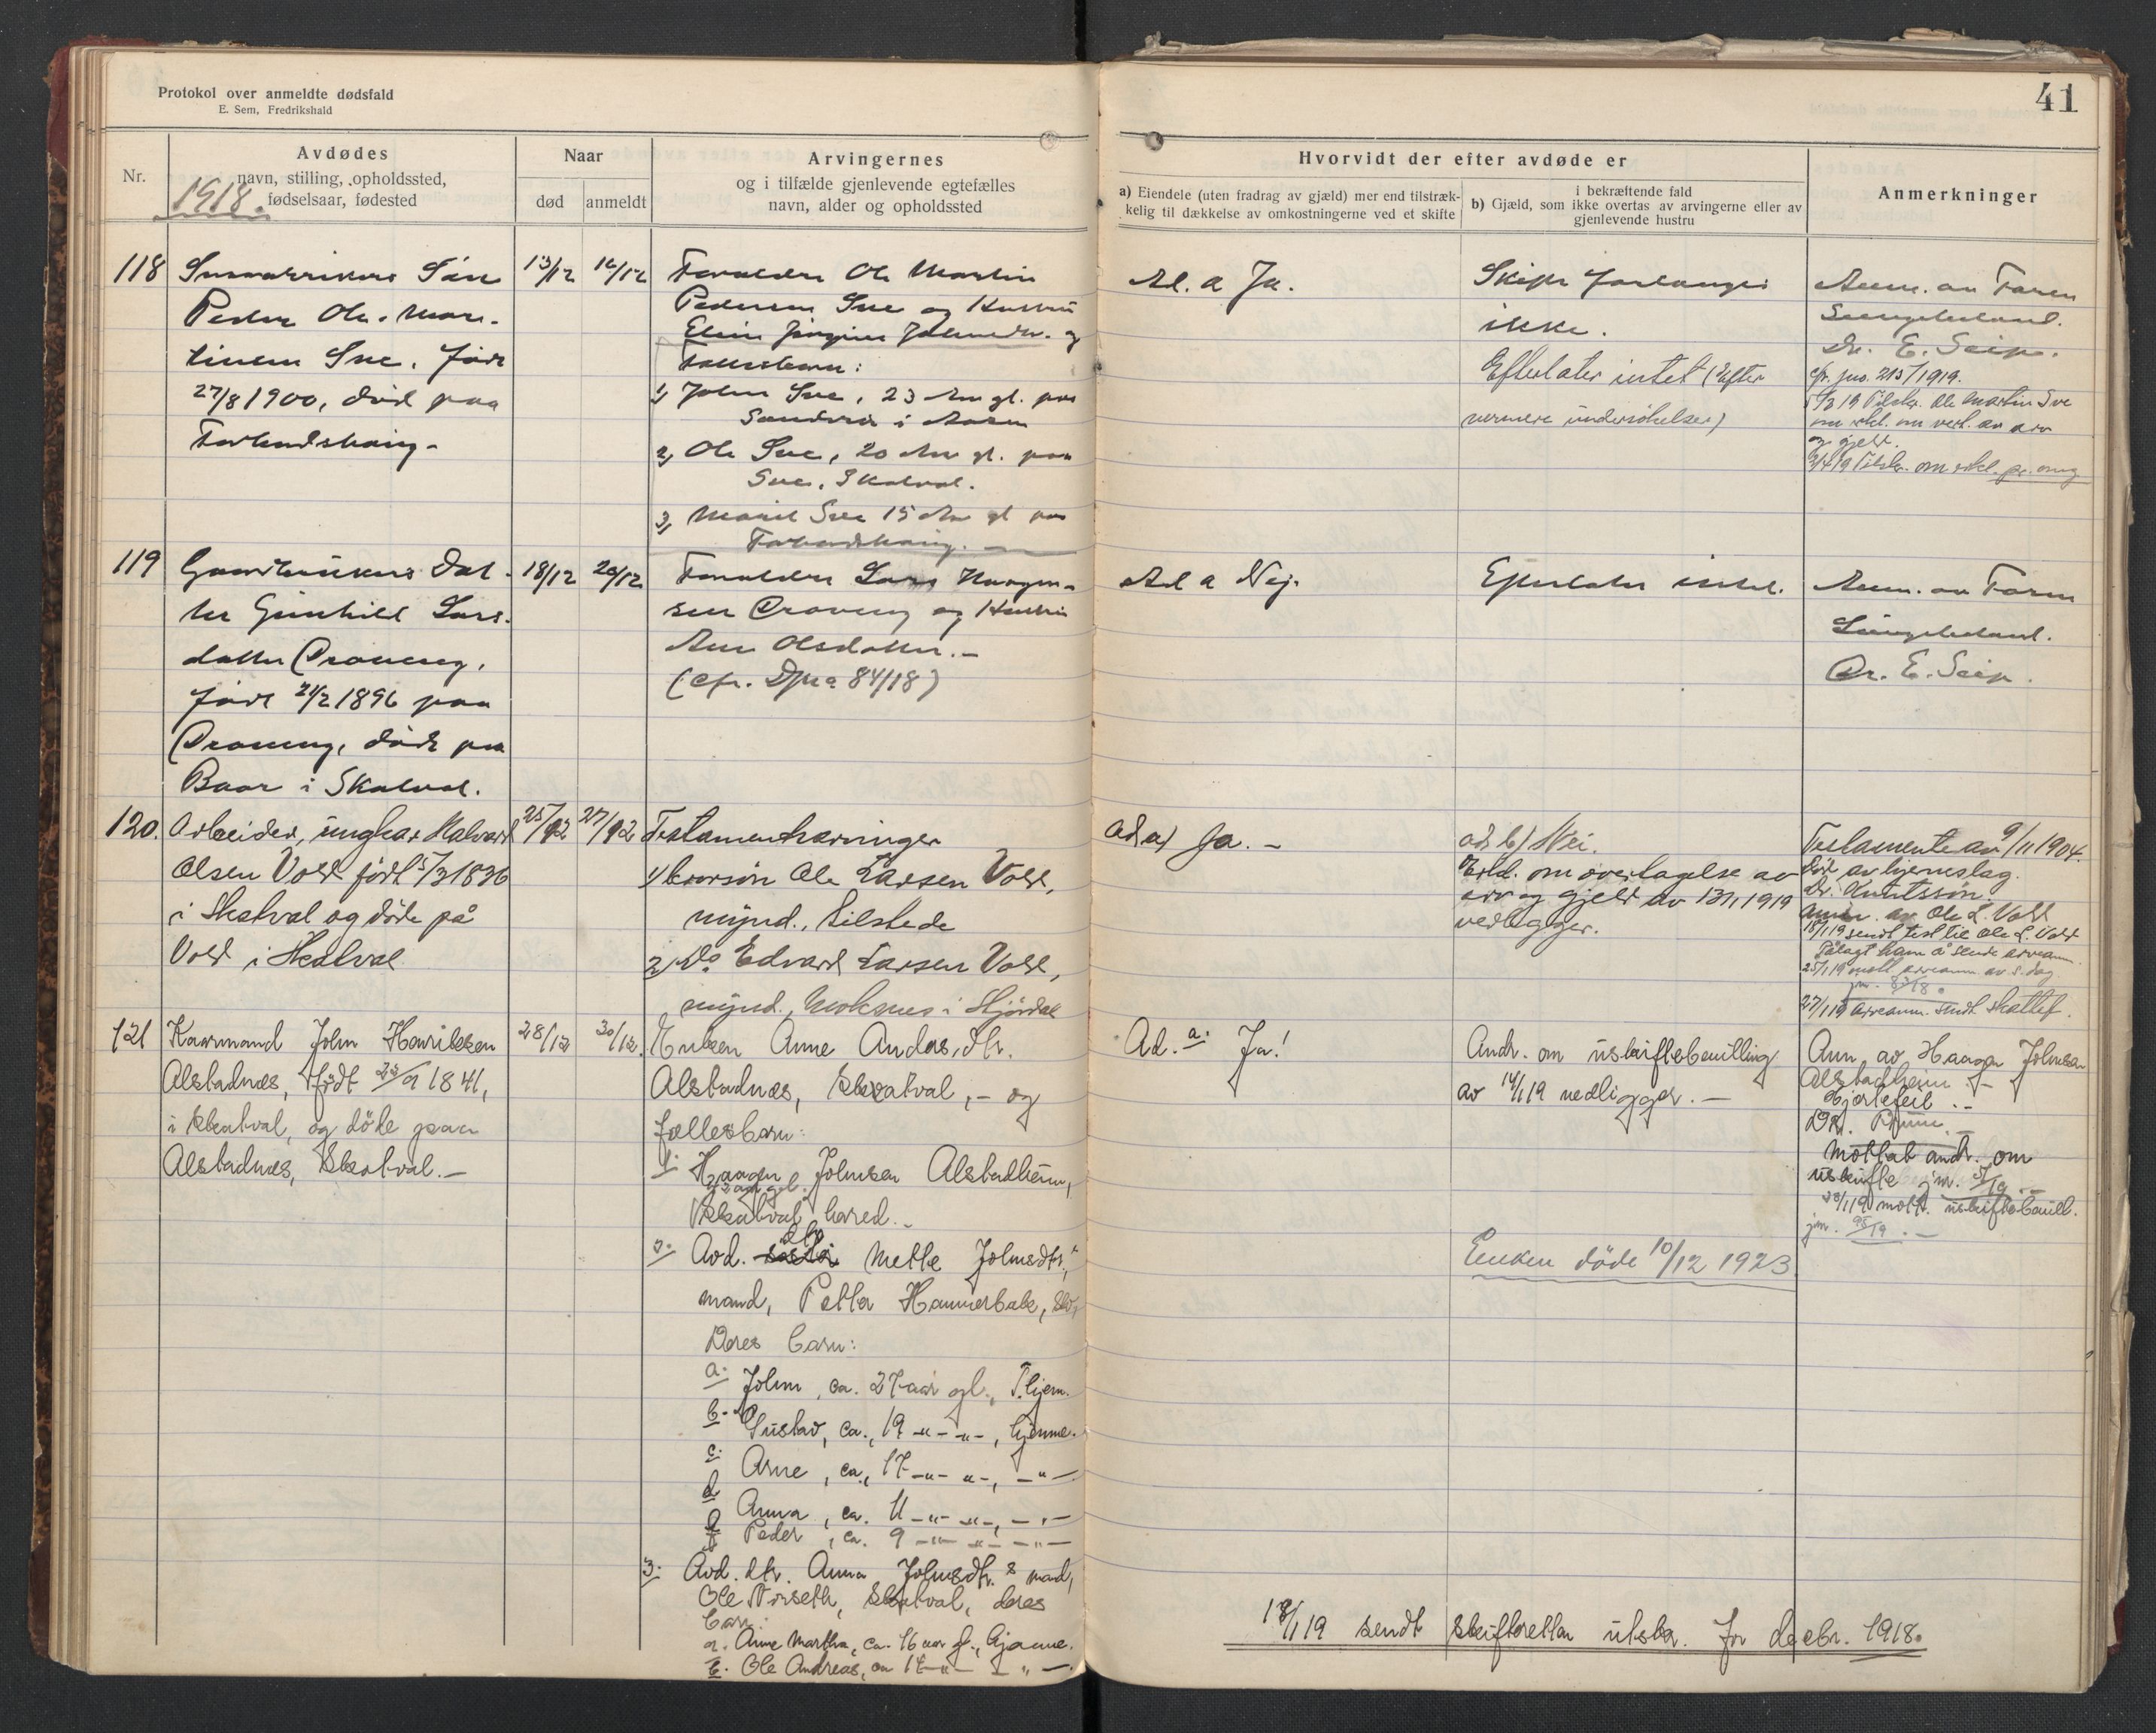 Protokol over anmeldte dødsfald
E. Sem, Fredrikshald
41
Nr.
Avdødes
navn, stilling, opholdssted,
fødselsaar, fødested
1918.
Naar
død
anmeldt
Arvingernes
og i tilfælde gjenlevende egtefælles
navn, alder og opholdssted
Hvorvidt der efter avdøde er
a) Eiendele (uten fradrag av gjæld) mer end tilstræk-
kelig til dækkelse av omkostningerne ved et skifte
i bekræftende fald
b) Gjæld, som ikke overtas av arvingerne eller av
gjenlevende hustru
Anmerkninger
118
Søn
Peder Ole Mar-
tinsen Sve, født
27/8 1900, død paa
Forbordshaug.
13/12
Forældre Ole Martin
Pedersen Sve og Hustru
og
Fællesbarn:
1, John Sve, 23 Aar gl. paa
i Aasen
2, Ole Sve, 20 Aar gl. paa
Sve, Skatval.
3, Marit Sve 15 Aar gl paa
Forbordshaug.
Ad. a Ja.
Skifte forlanges
ikke.
Efterlater intet (Efter
nærmere undersøkelser)
Anm. av Faren
Dr. E. Seip.
cfr. jno. 215/1919.
Ole Martin Sve
om erkl. om overt. av arv
og gjeld.
om erkl. pr. omg
119
Gaardbrukers Dat-
ter Gunhild Lars-
datter Praoveng,
født 21/2 1896 paa
død paa
Baar i Skatval.
18/12
20/12
Forældre Lars Haagen-
sen og Hustru
Ane Olsdatter.-
(cfr. 84/18)
Ad a Nej.
Efterlater intet.
Anm. av Faren
Dr. E. Seip.
120.
Arbeider, ungkar Halvard
Olsen Vold født 5/3 1836
i Skatval og døde på
Vold i Skatval
25/12
27/12
Testamentsarvinger
1) brorsøn Ole Larsen Vold,
mynd., tilstede
2) Do Edvard Larsen Vold,
mynd., i Stjørdal
ad a) Ja. -
ad b) Nei.
Erkl. om overtagelse av
arv og gjeld av 13/1 1919
vedlegger.
Testamente av 9/11 1904.
Død av hjerneslag.
Dr. Knutssøn.
Anm. av Ole L. Vold
18/1 19 sendt test til Ole L. Vold
Pålagt ham å sende arveanm.
25/1 19 mott. arveanm. av s. dag
27/1 19 arveanm. sendt skattef.
121
Kaarmand John Henriksen
Alstadnæs, født 23/9 1841,
i Skatval, og døde paa
Alstadnæs, Skatval.-
28/12
30/12.
Enken Anne Andersdtr.
Alstadnæs, Skatval, - og
fællesbarn:
1: Haagen Johnsen Alstadheim,
Skatval hered.-
2: Avd. dtr. Mette Johnsdtr.s
mand, Petter Hammerbak,
Deres barn:
a: John, ca. 27 aar gl., T.hjem.
b: Gustav, ca., 19 -"- -"-, hjemme.
c: Arne, ca., 17 -"- -"-, -"-
d Anna, ca. 11 -"- -"-, -"-
e Peder, ca. 9 -"- -"- -"-
3: Avd. dtr. Anna Johnsdtr.s mand,
Ole Vinseth, Skatval, deres
barn:
a. Anne Martha, ca. 16 aar gl., hjemme.
b. Ole Andreas, ca 17 -"- - " -.
Ad. a: Ja!
Andr. om uskiftebevilling
av 14/1 19 vedligger. -
Enken døde 10/12 1923.
Anm. av Haagen Johnsen
Alstadheim. -
Hjertefeil. -
Dr.
Mottat andr. om
uskifte jnr.
28/1 19 mott. uskiftebevill.
jnr. 95/19. -
18/1 19 sendt skifteretten utskr. for decbr. 1918.